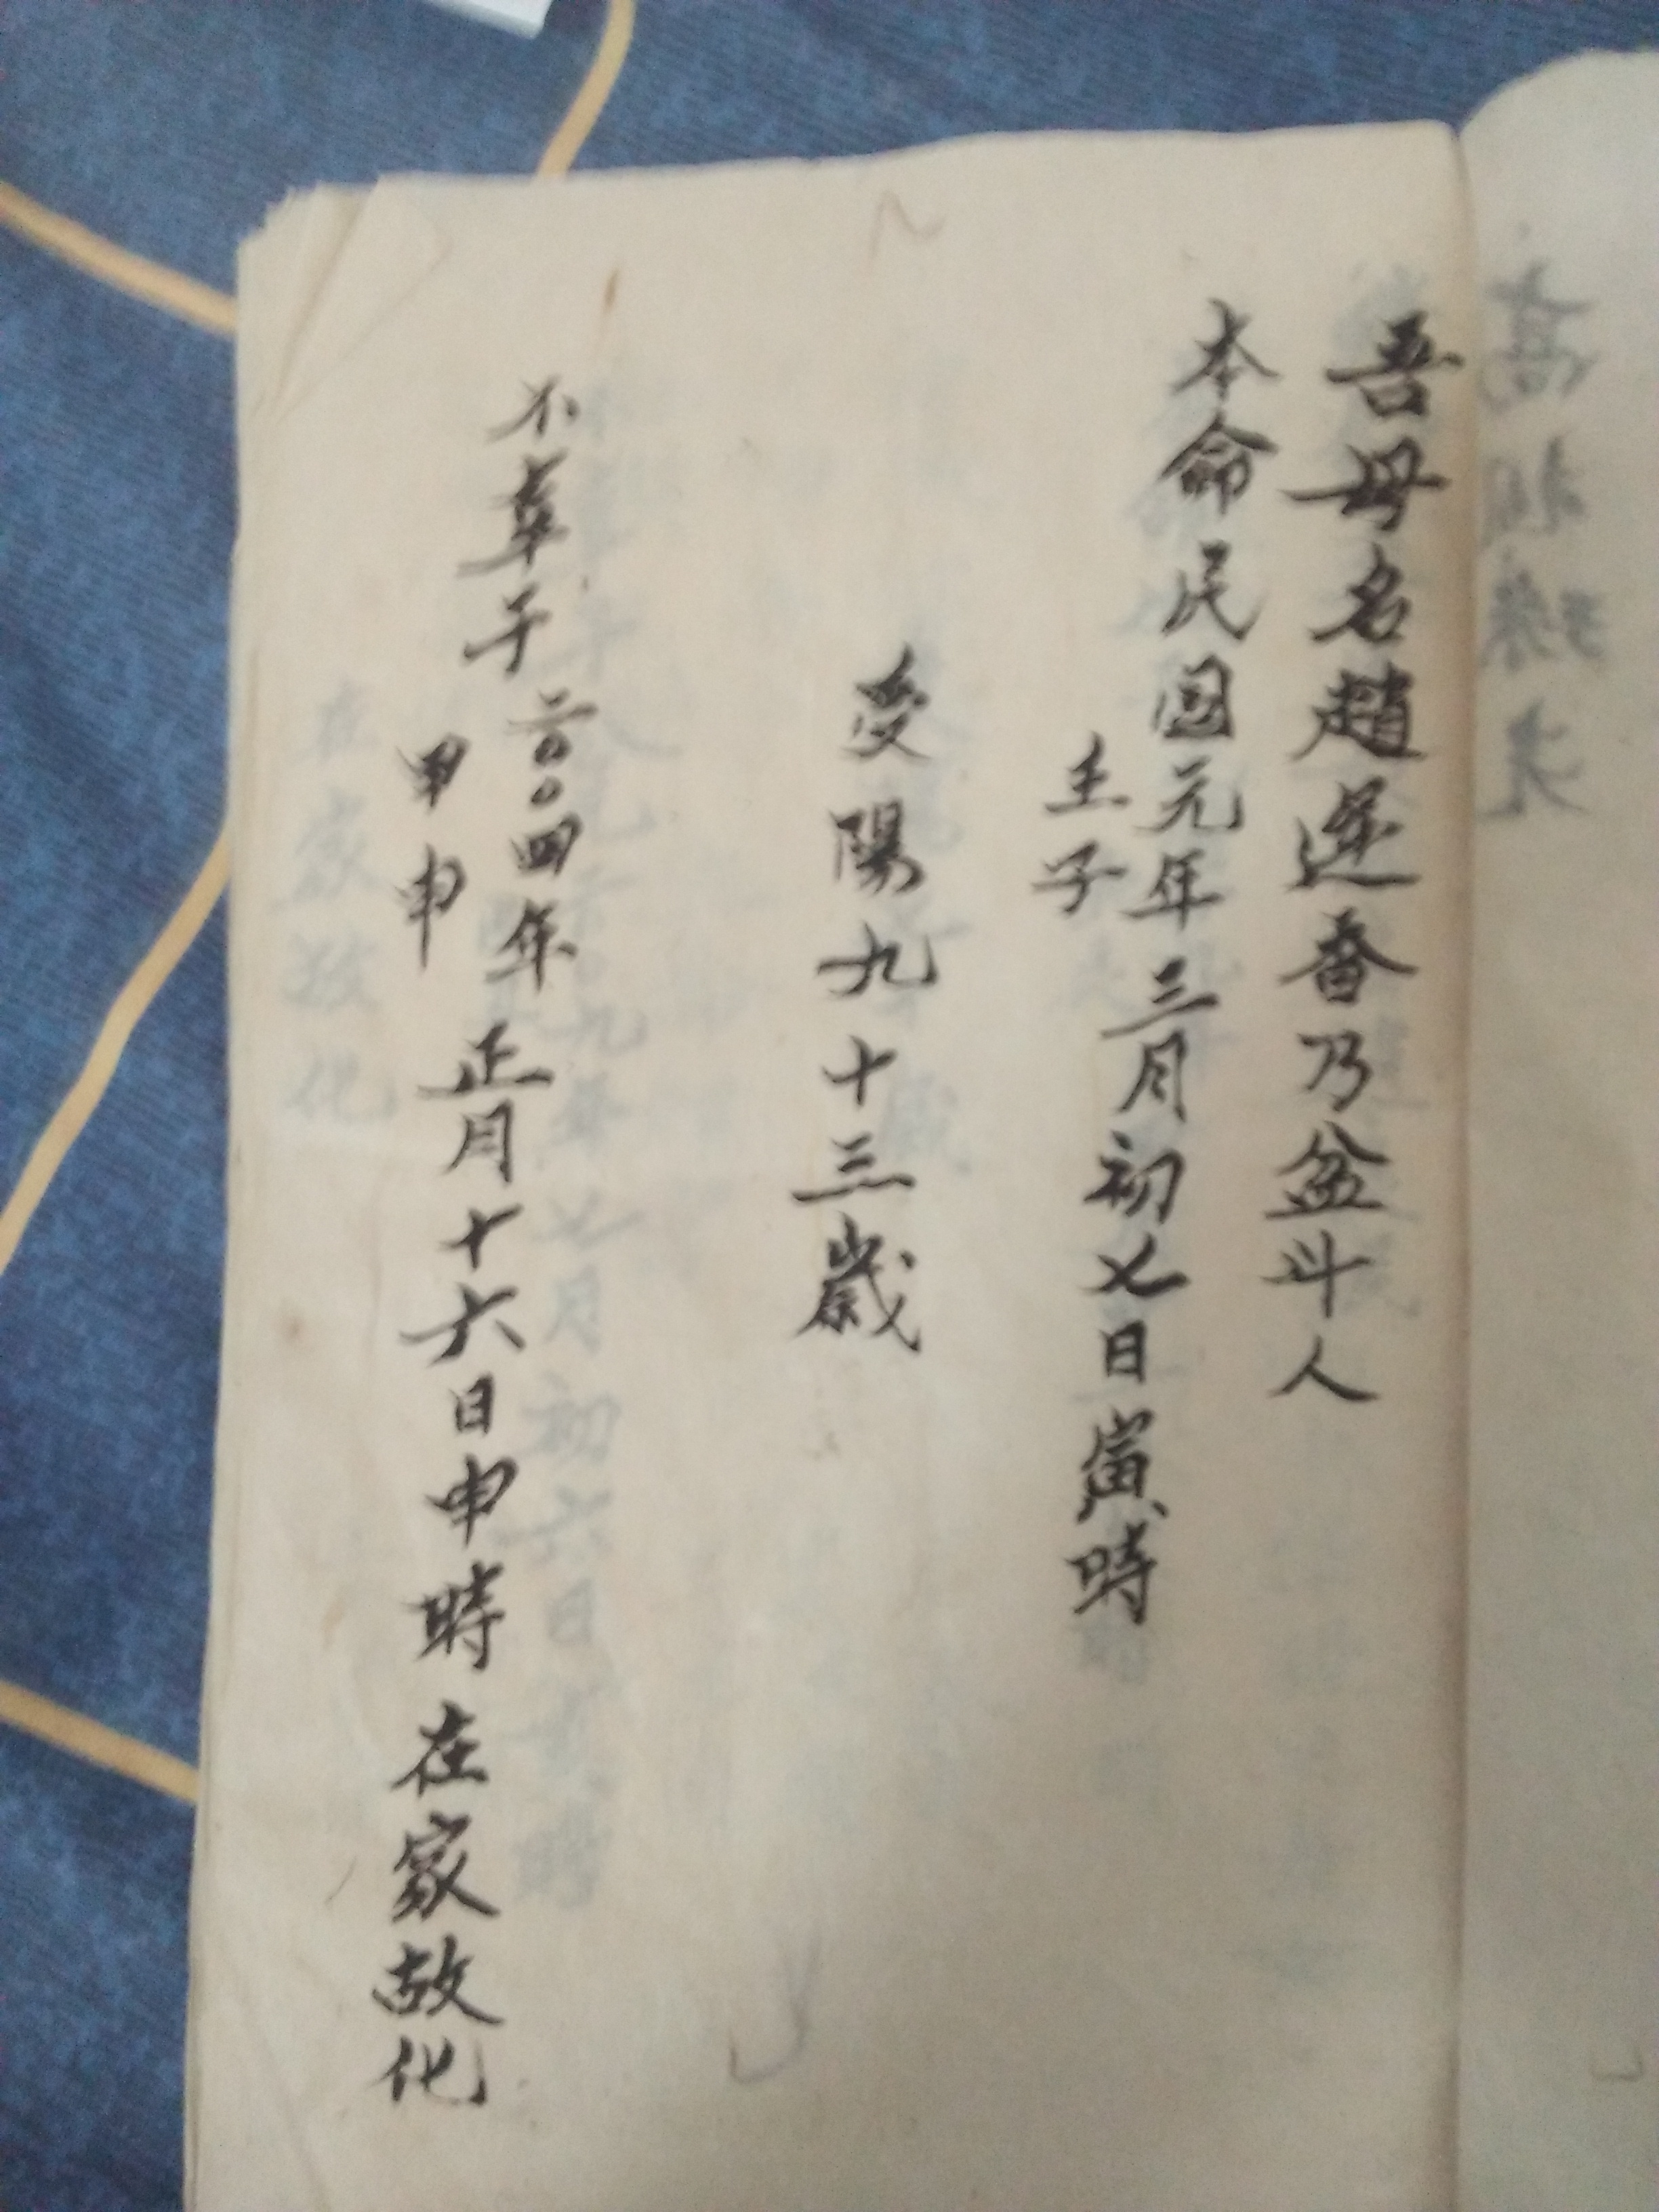 吾母名趙蓮香乃盆斗人
本命民國元年三月初七日寅時
壬子
受陽九十三歲
不幸于二00四年正月十六日申時在家故化
甲申